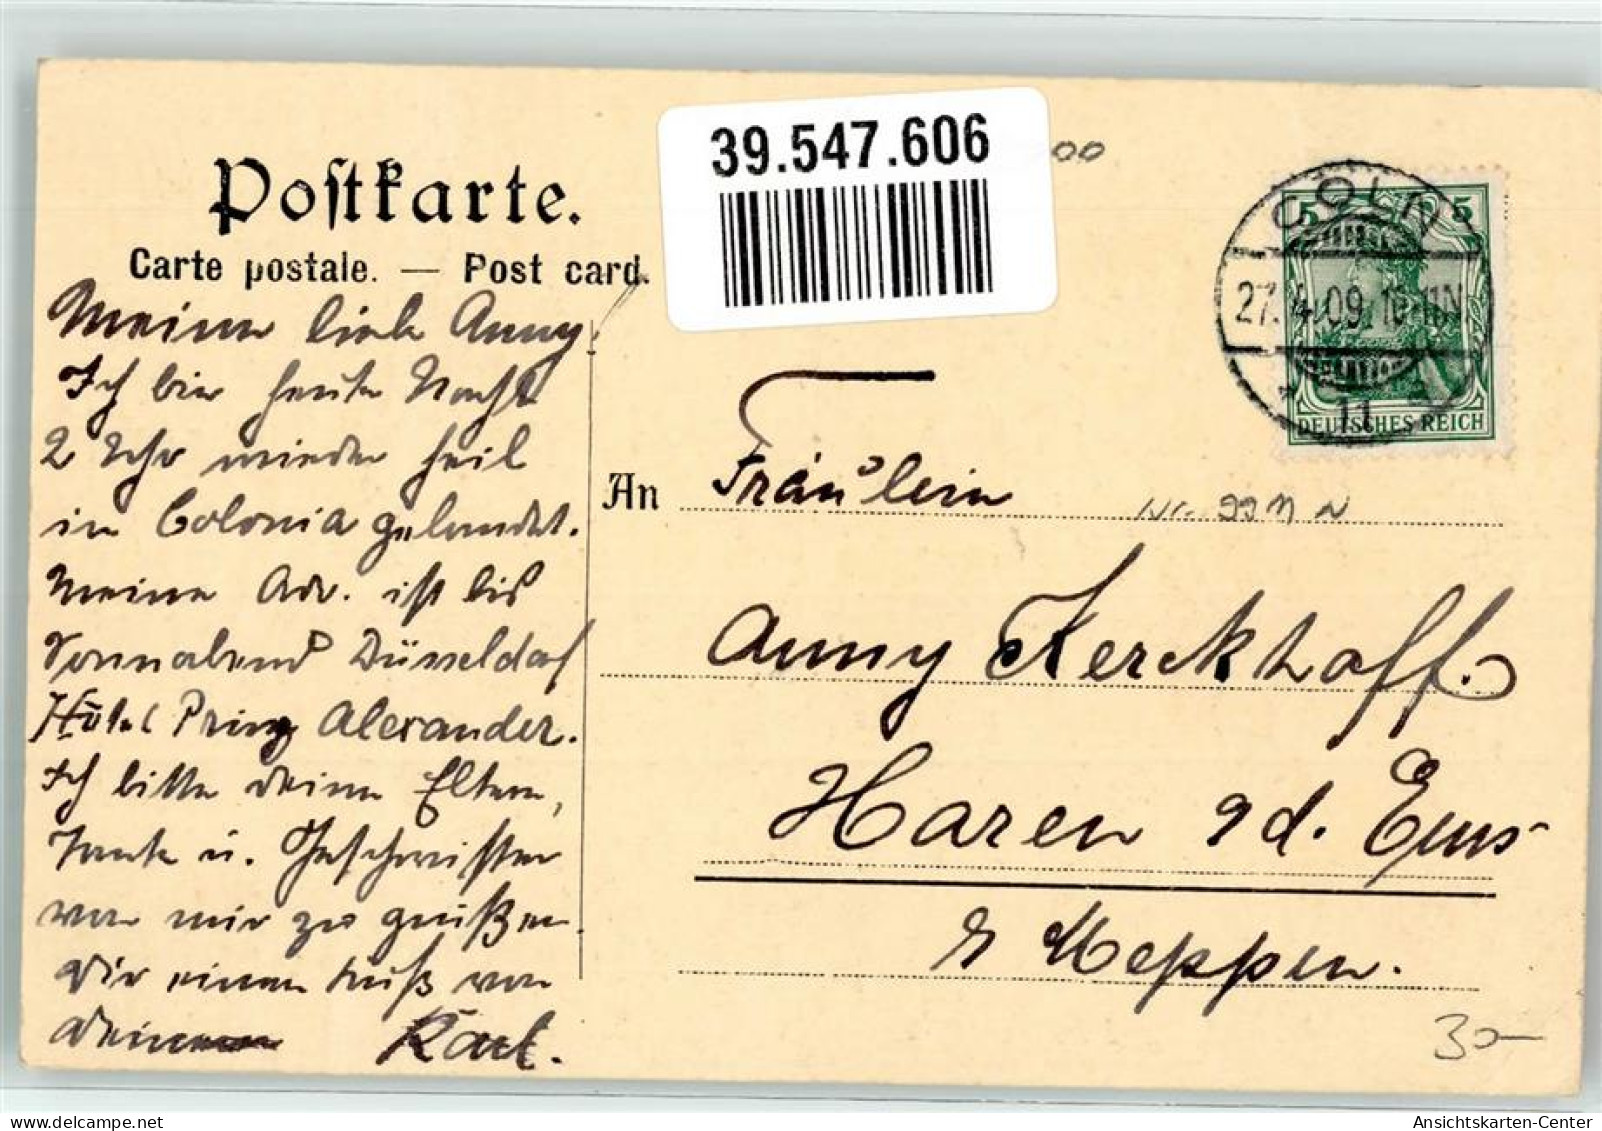 39.547.606
Postkarte.
Carte postale. — Post card.
Meine liebe Anny!
Ich bin heute Nacht
2 Uhr wieder heil
in Colonia gelandet.
Meine Adr. ist bis
Sonnabend Düsseldorf
Hotel Prinz Alexander.
Ich bitte deine Eltern,
Tante u. Geschwister
von mir zu grüßen.
Dir einen Kuß von
Deinem Karl.
CÖLN
27.4.09.10-11N.
11
5 5
DEUTSCHES REICH
An Fräulein
Anny Kerckhoff.
Haren a. d. Ems
b/ Meppen.
30—
Ansichtskarten-Center